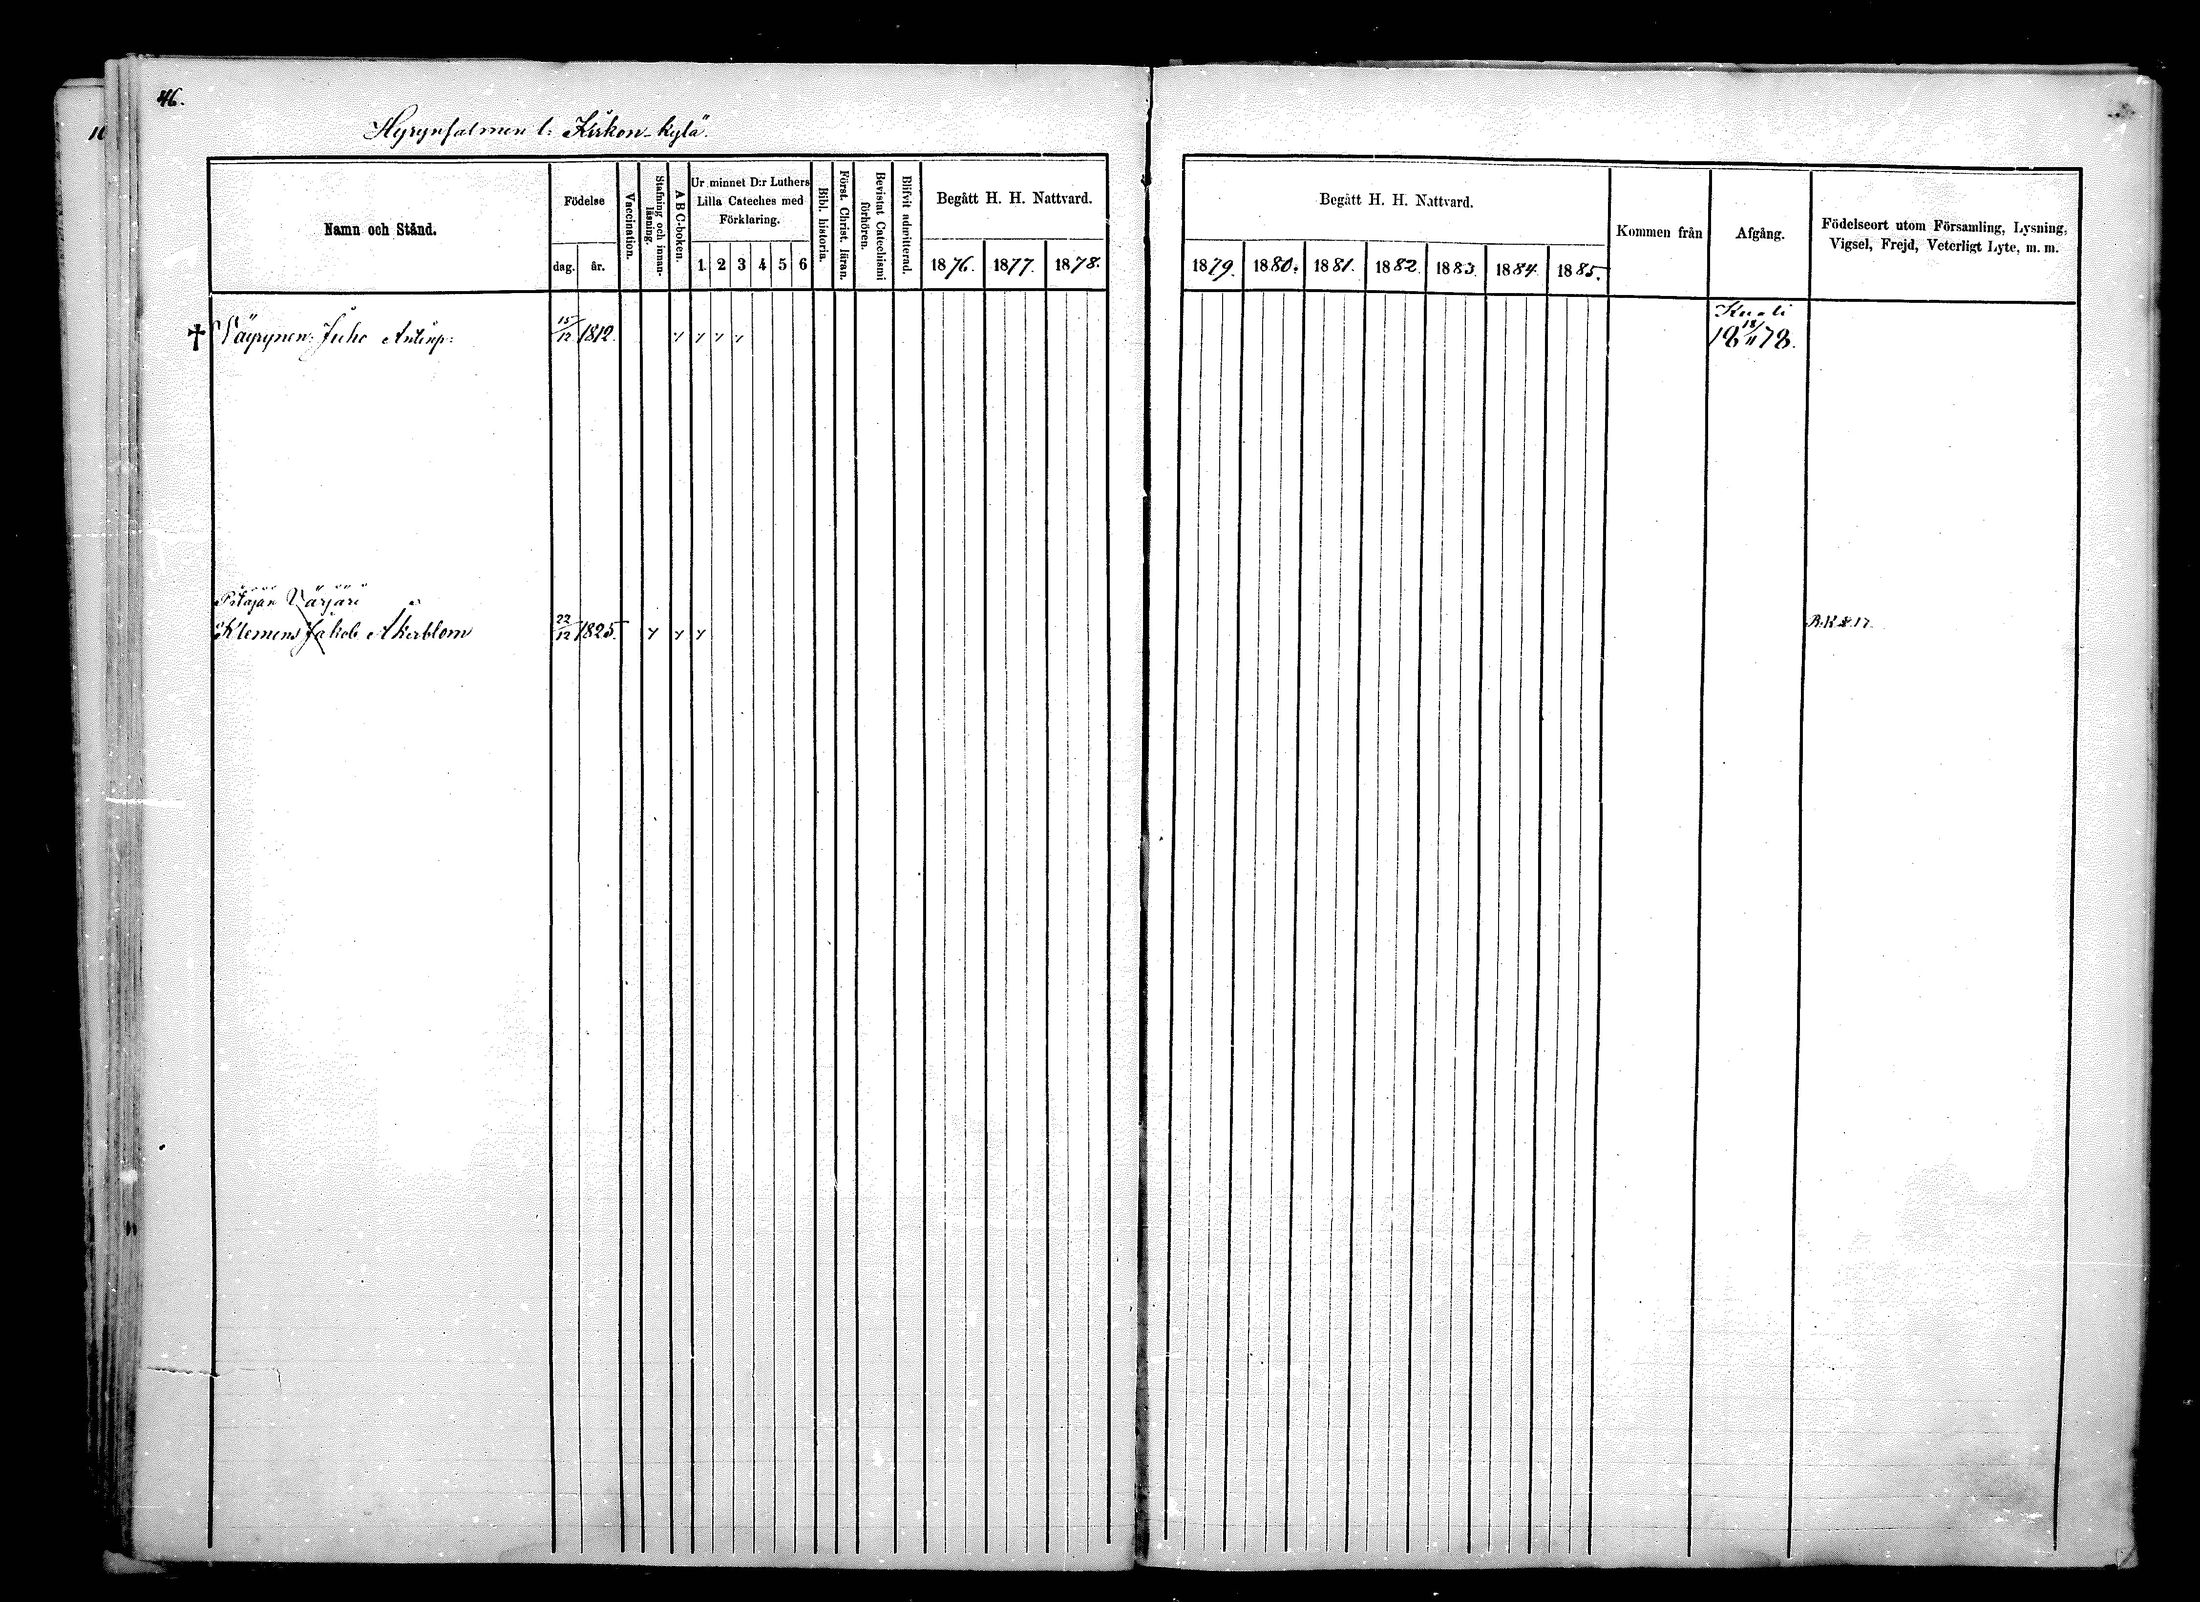 46.
Hyrynsalmen l: Kirkon-kylä.
Namn och Stånd.
Födelse
dag.
år.
Vaccination.
Stafning och innan-läsning.
A B C-boken.
Ur minnet D:r Luthers
Lilla Cateches med
Förklaring.
1 2 3 4 5 6
Bibl. historia.
Först. Christ. läran.
Bevistat Catechismi
förhören.
Blifvit admitterad.
Begått H. H. Nattvard.
1876. 1877. 1878.
Begått H. H. Nattvard.
1879. 1880. 1881. 1882. 1883. 1884. 1885.
Kommen från
Afgång.
Födelseort utom Församling, Lysning,
Vigsel, Frejd, Veterligt Lyte, m. m.
Kuoli
† Väyrynen: Juho Antinp: 15/12 1812. 18 18/11 78.
Pitäjän Värjäri
Klemens Jakob Åkerblom 22/12 1825. R.K. S. 17.